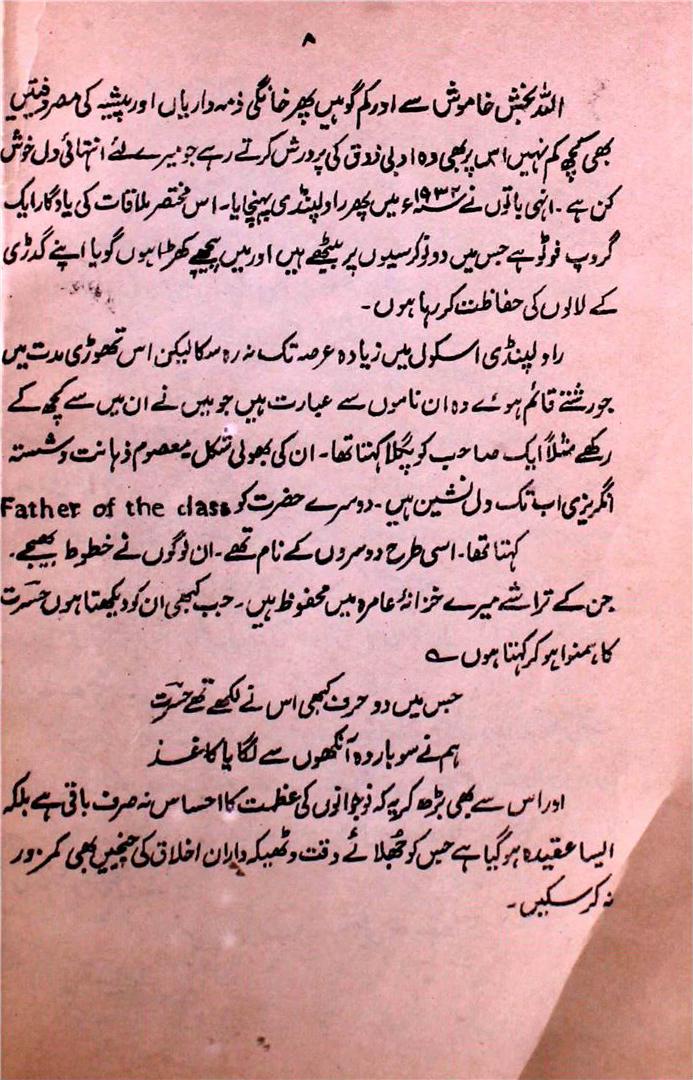 ۸
اللہ بخش خاموش سے اور کم گو ہیں پھر خانگی ذمہ داریاں اور پیشہ کی مصروفیتیں
بھی کچھ کم نہیں اس پر بھی وہ ادبی ذوق کی پرورش کرتے رہے جو میرے لئے انتہائی دل خوش
کن ہے۔ انہی باتوں نے ۱۹۳۲ء میں پھر راولپنڈی پہنچایا۔ اس مختصر ملاقات کی یادگار ایک
گروپ فوٹو ہے جس میں دو تو کرسیوں پر بیٹھے ہیں اور میں پیچھے کھڑا ہوں گویا اپنے گدڑی
کے لالوں کی حفاظت کر رہا ہوں۔
راولپنڈی اسکول میں زیادہ عرصہ تک نہ رہ سکا لیکن اس تھوڑی مدت میں
جو رشتے قائم ہوئے وہ ان ناموں سے عبارت ہیں جو میں نے ان میں سے کچھ کے
رکھے مثلاً ایک صاحب کو پگلا کہتا تھا۔ ان کی بھولی شکل معصوم ذہانت و شستہ
انگریزی اب تک دل نشین ہیں۔ دوسرے حضرت کو Father of the class
کہتا تھا۔ اسی طرح دوسروں کے نام تھے۔ ان لوگوں نے خطوط بھیجے۔
جن کے تراشے میرے خزانۂ عامرہ میں محفوظ ہیں۔ جب کبھی ان کو دیکھتا ہوں حسرتؔ
کا ہمنوا ہو کر کہتا ہوں ؎
جس میں دو حرف کبھی اس نے لکھے تھے حسرتؔ
ہم نے سو بار وہ آنکھوں سے لگایا کاغذ
اور اس سے بھی بڑھ کر یہ کہ نوجوانوں کی عظمت کا احساس نہ صرف باقی ہے بلکہ
ایسا عقیدہ ہو گیا ہے جس کو جُھلائے وقت و ٹھیکہ داران اخلاق کی چیخیں بھی کمزور
نہ کر سکیں۔